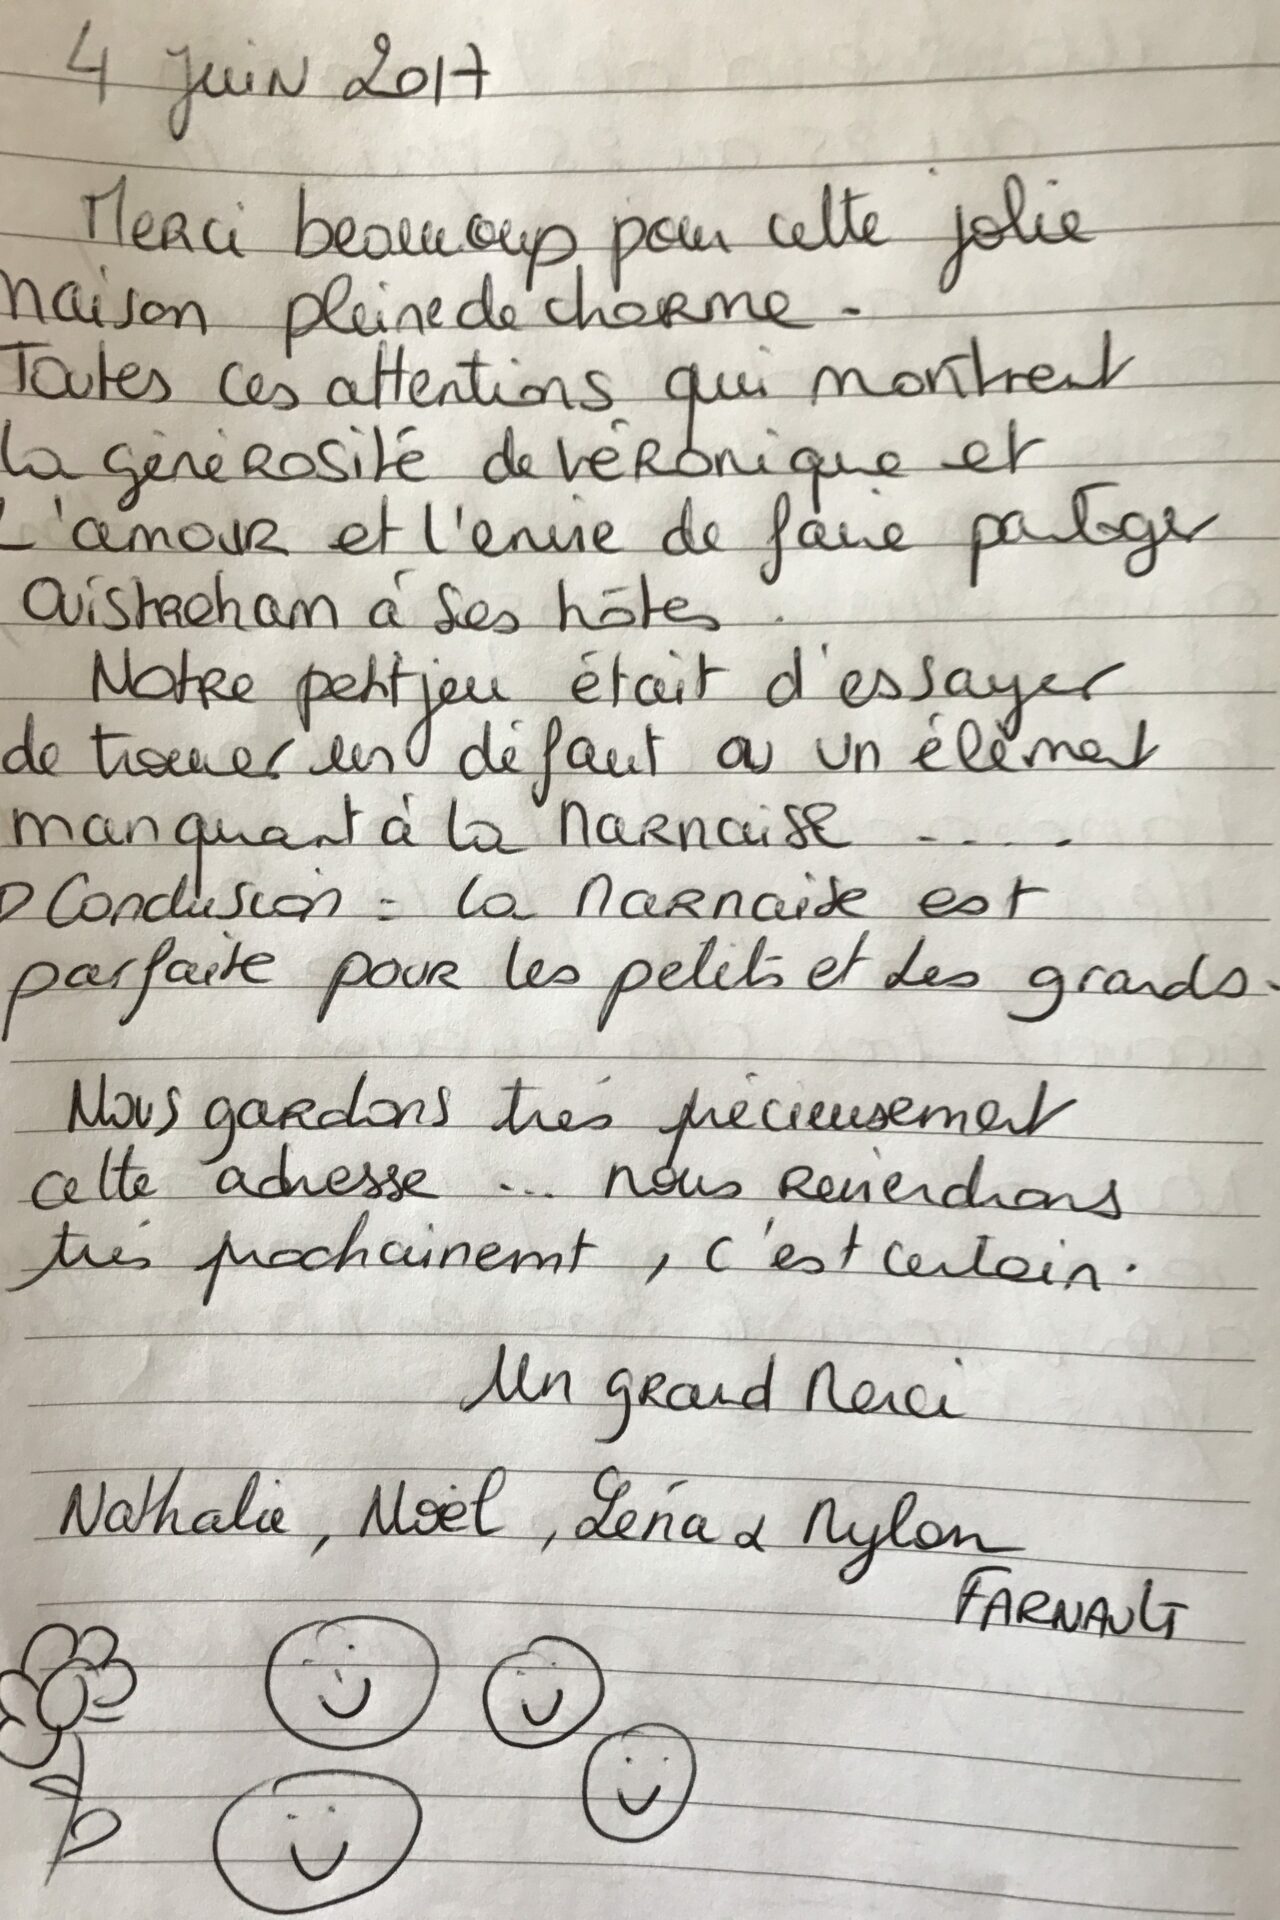 4 Juin 2017
Merci beaucoup pour cette jolie
maison pleine de charme.
Toutes ces attentions qui montrent
la générosité de Véronique et
L'amour et l'envie de faire partager
Ouistreham à ses hôtes.
Notre petit jeu était d'essayer
de trouver un défaut ou un élément
manquant à la Marnaise ....
Conclusion : la Marnaise est
parfaite pour les petits et les grands.
Nous gardons très précieusement
cette adresse ... nous reviendrons
très prochainemt, c'est certain.
Un grand Merci
Nathalie, Noël, Léna & Mylon
FARNAULT